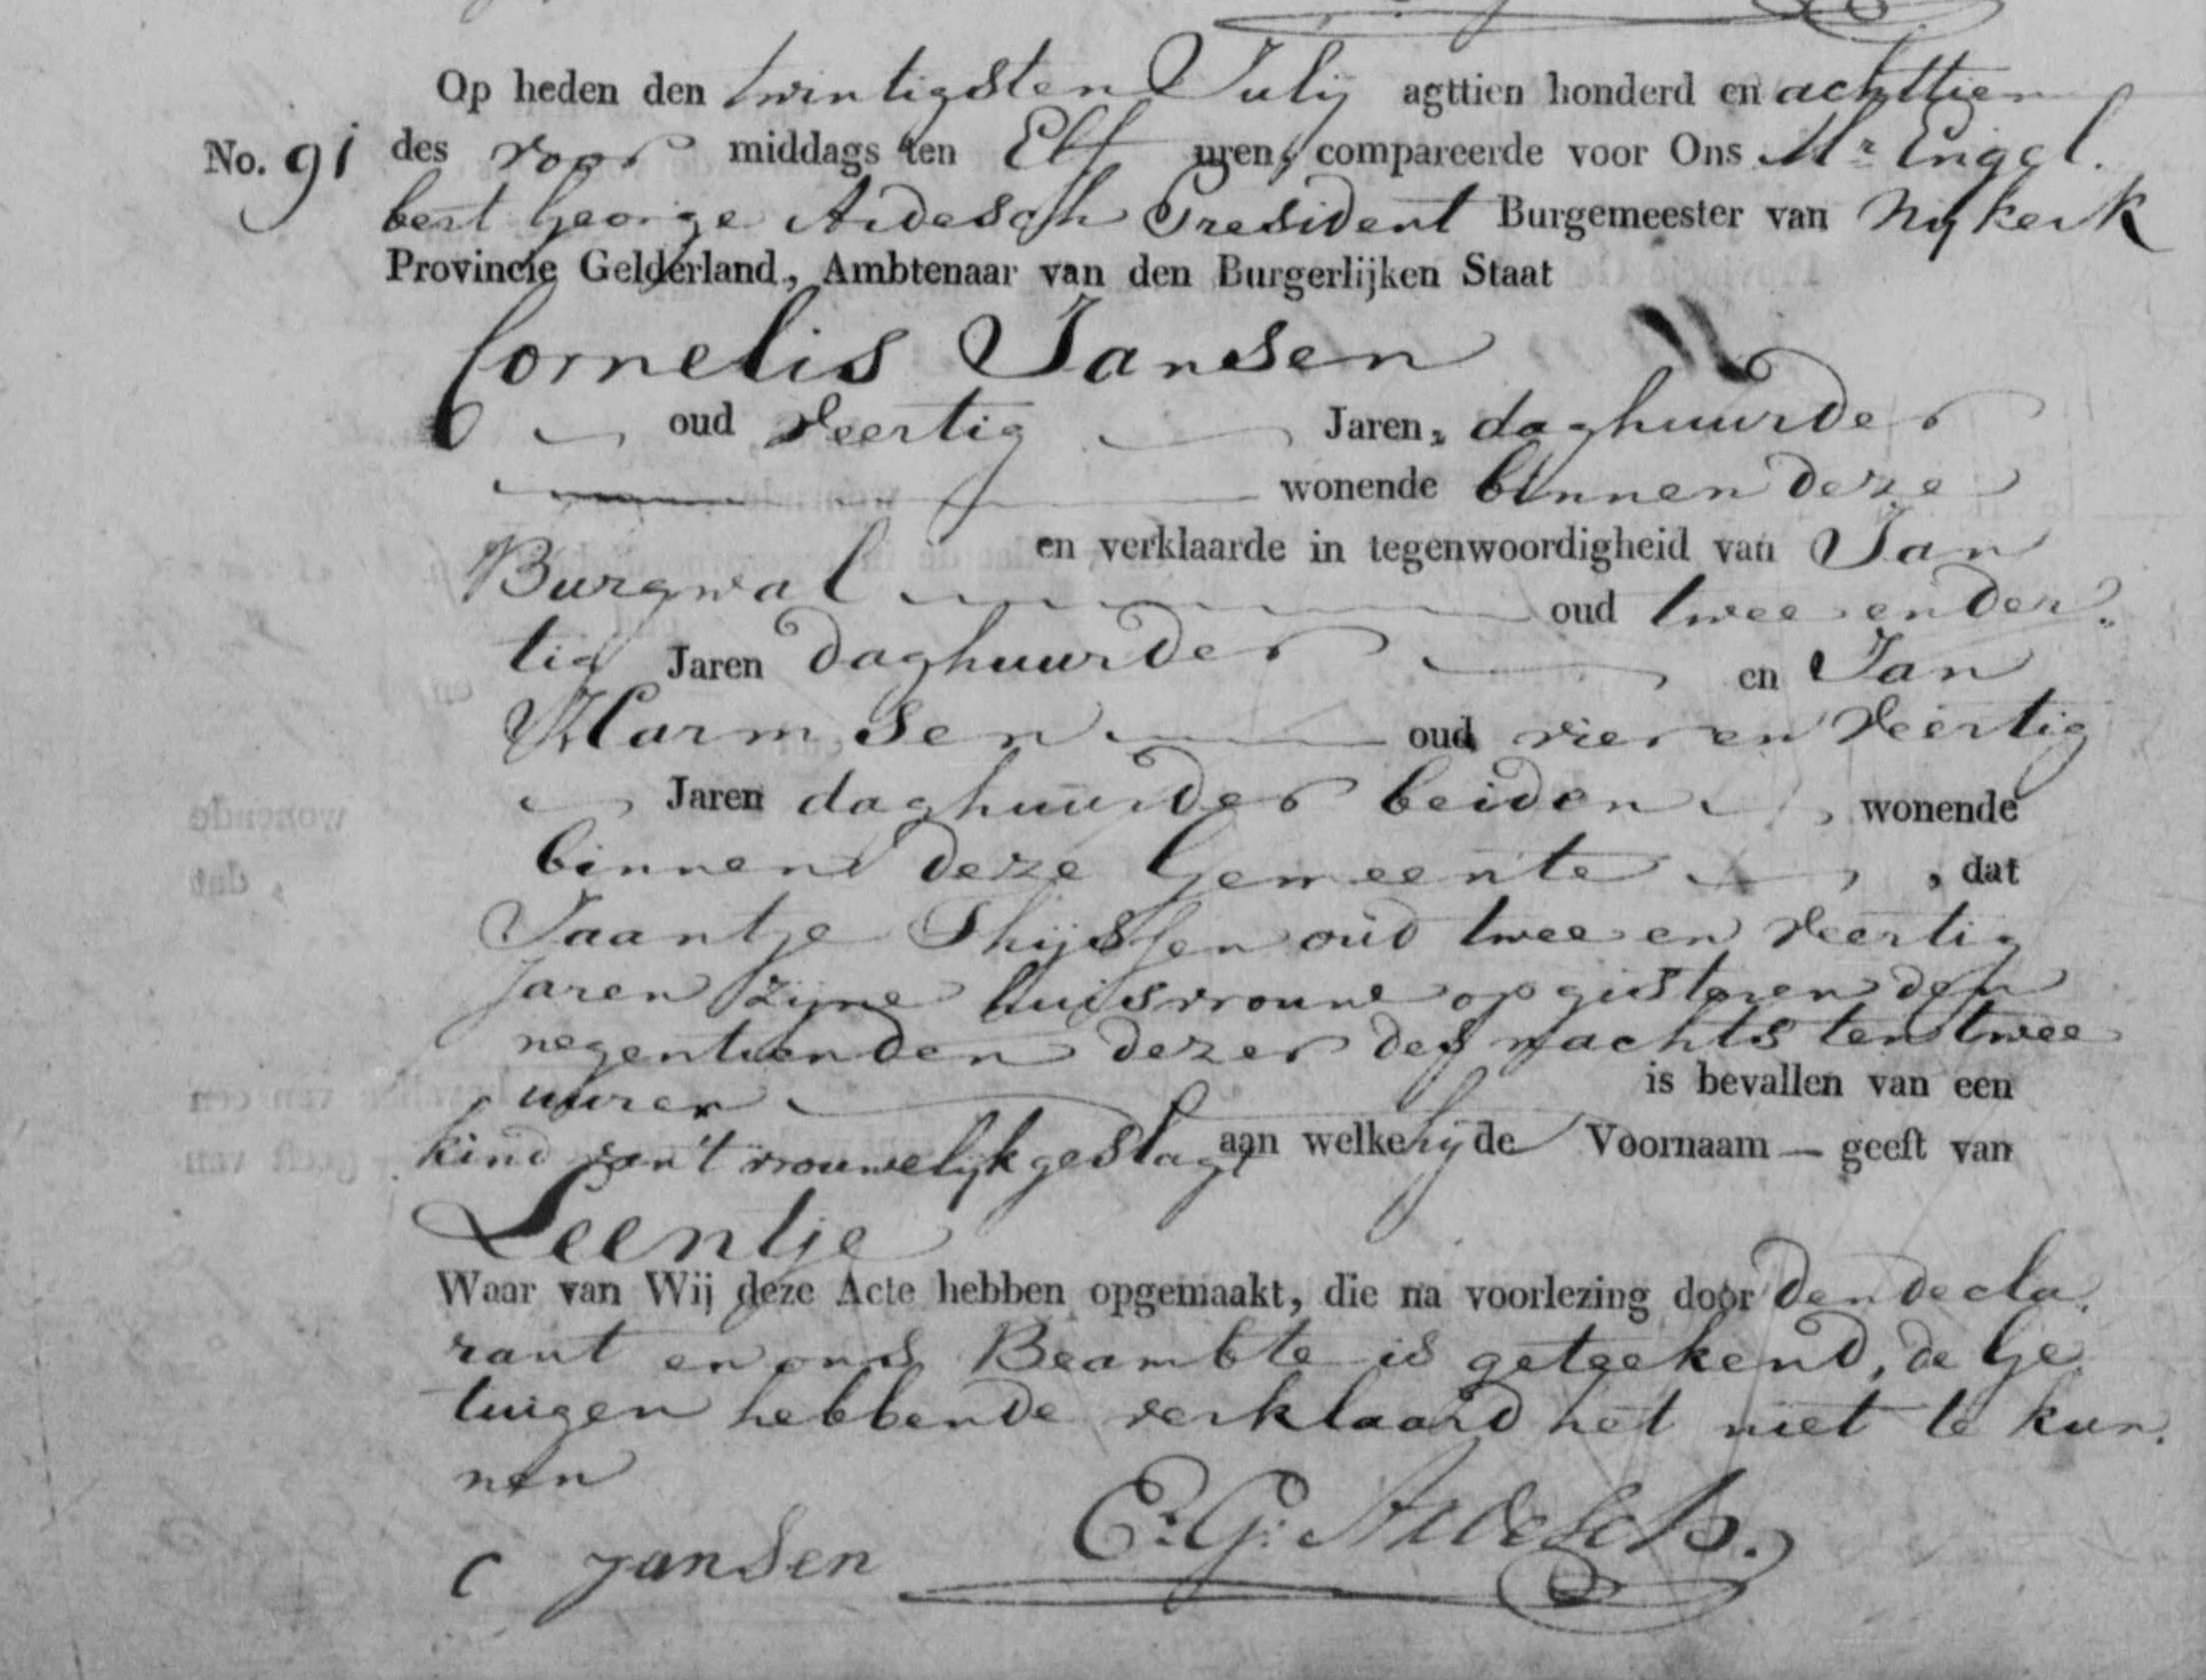 Op heden den twintigsten July agttien honderd en achttien
No. 91 des voor middags ten Elf uren, compareerde voor Ons Mr Engel-
bert George Ardesch President Burgemeester van Nykerk
Provincie Gelderland, Ambtenaar van den Burgerlijken Staat
Cornelis Jansen
oud veertig Jaren, daghuurder
wonende binnen deze
en verklaarde in tegenwoordigheid van Jan
Burgwal oud twee en der-
tig Jaren daghuurder en Jan
Harmsen oud vier en veertig
Jaren daghuurder beiden wonende
binnen deze Gemeente , dat
Jaantje Thijssen oud twee en veertig
jaren zijne huisvrouw op gisteren den
negentienden dezer des nachts ten twee
uuren is bevallen van een
kind van 't vrouwelijk geslagt aan welke hij de Voornaam — geeft van
Leentje
Waar van Wij deze Acte hebben opgemaakt, die na voorlezing door den decla-
rant en ons Beambte is geteekend, de Ge-
tuigen hebbende verklaard het niet te kun-
nen
C Jansen E. G. Ardesch.